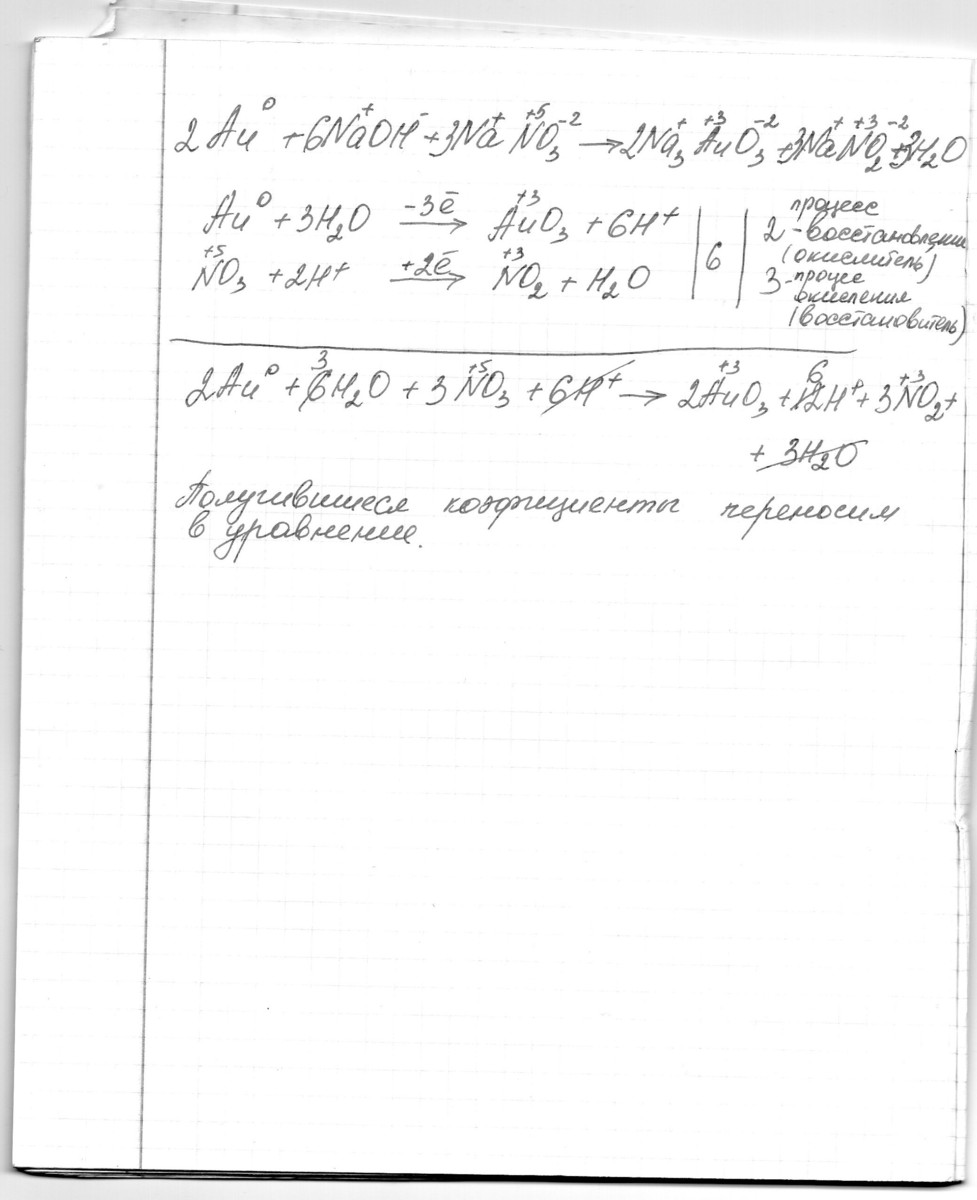 2Au⁰ + 6Na⁺OH⁻ + 3Na⁺N⁺⁵O₃⁻² → 2Na₃⁺Au⁺³O₃⁻² + 3Na⁺N⁺³O₂⁻² + 3H₂O
Au⁰ + 3H₂O —(-3ē)→ Au⁺³O₃ + 6H⁺ | 6 | 2 - процесс восстановления (окислитель)
N⁺⁵O₃ + 2H⁺ —(+2ē)→ N⁺³O₂ + H₂O | | 3 - процес окисления (восстановитель)
2Au⁰ + 6̶ 3 H₂O + 3N⁺⁵O₃ + 6̶H̶⁺̶ → 2Au⁺³O₃ + 1̶2̶ 6 H⁺ + 3N⁺³O₂ +
+ 3̶H̶₂̶O̶
Получившиеся коэфициенты переносим
в уравнение.